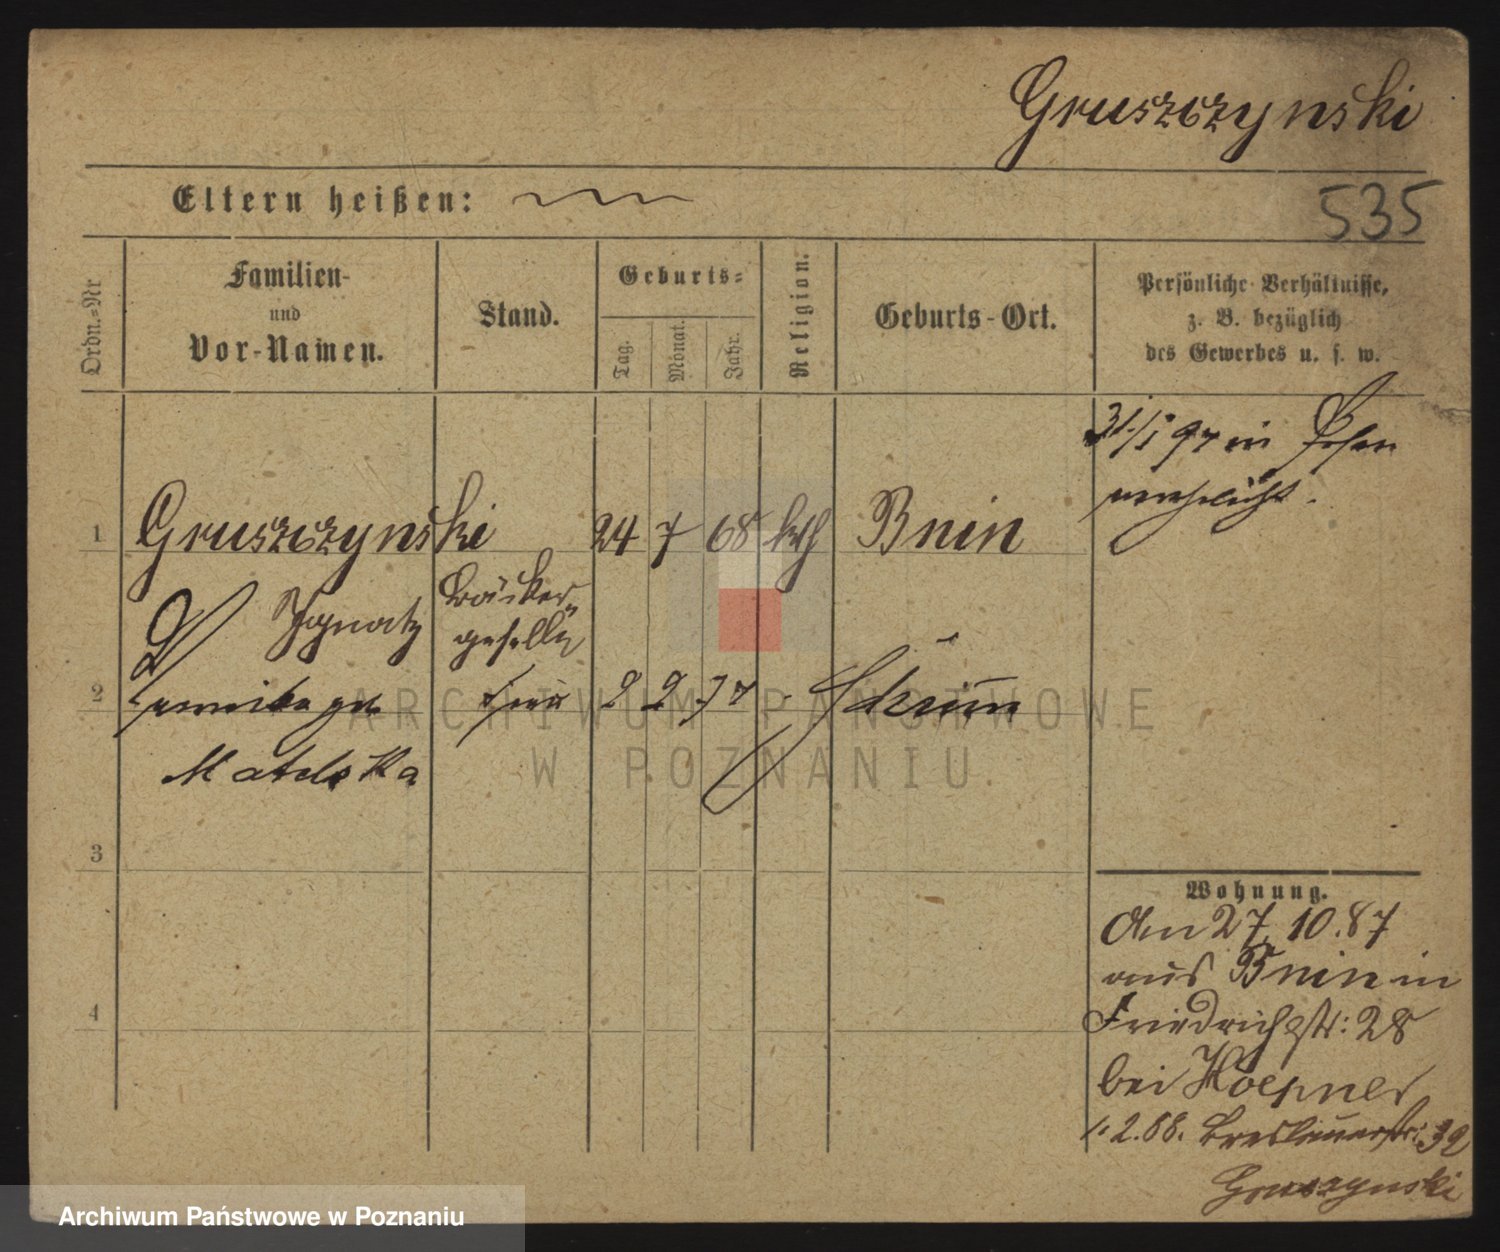 Gruszczynski
Eltern heißen:
535
Ordn.-Nr
Familien-
und
Vor-Namen.
Stand.
Geburts-
Tag.
Monat.
Jahr.
Religion.
Geburts-Ort.
Persönliche Verhältnisse,
z. B. bezüglich
des Gewerbes u. s. w.
31/1 97 in Posen
verehelicht.
1 Gruszczynski 24 7 68 kth Bnin
Ignatz Bäcker-
geselle
2 Frau 2 2 77 Schrimm
Matelska
3
4
Wohnung.
Am 27. 10. 87
aus Bnin in
Friedrichstr: 28
bei Hoepner
1. 2. 88. Breslauerstr: 32
Gruszynski
ARCHIWUM PAŃSTWOWE
W POZNANIU
Archiwum Państwowe w Poznaniu